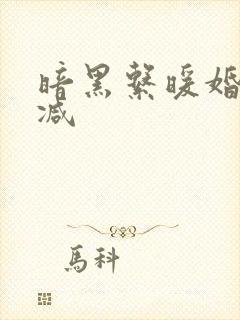 暗黑繫暖婚
减
馬科